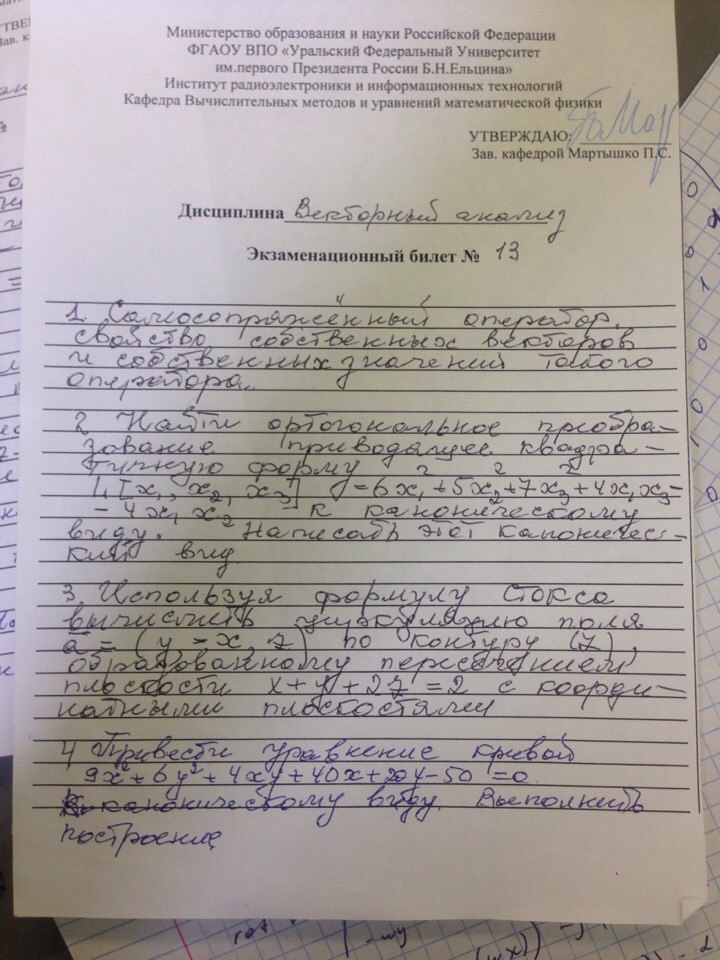 Министерство образования и науки Российской Федерации
ФГАОУ ВПО «Уральский Федеральный Университет
им.первого Президента России Б.Н.Ельцина»
Институт радиоэлектроники и информационных технологий
Кафедра Вычислительных методов и уравнений математической физики
УТВЕРЖДАЮ:
Зав. кафедрой Мартышко П.С.
Дисциплина Векторный анализ
Экзаменационный билет № 13
1. Самосопряженный оператор.
свойство собственных векторов
и собственных значений такого
оператора.
2 Найти ортогональное преобра-
зование приводящее квадра-
тичную форму
L[x₁, x₂, x₃] = 6x₁²+5x₂²+7x₃²+4x₁x₃-
- 4x₁x₂ к каноническому
виду. Написать этот каничес-
кий вид
3. Используя формулу Стокса
вычислить циркуляцию поля
a = (y - x, z) по контуру (Z),
образованному пересечением
плоскости x+y+2z=2 с коорди-
натными плоскостями
4 Привести уравнение кривой
9x²+6y²+4xy+40x+20y-50=0.
К каноническому виду. Выполнить
построение